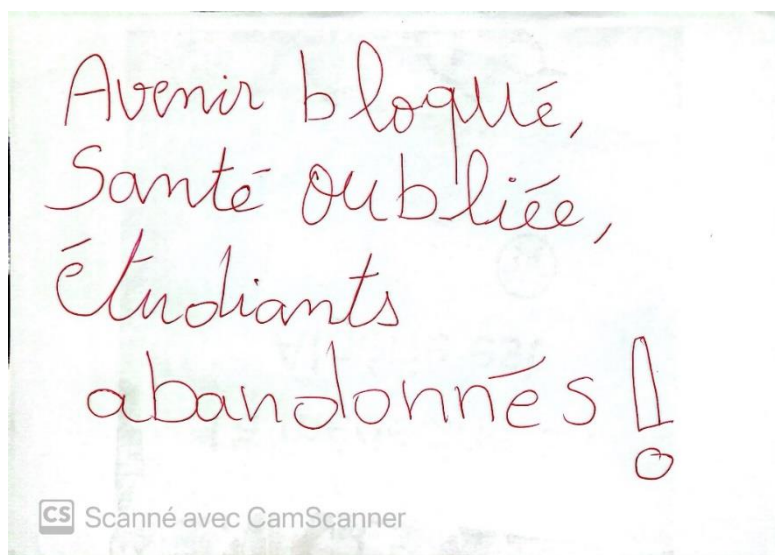 Avenir bloqué,
Santé oubliée,
étudiants
abandonnés !
CS Scanné avec CamScanner